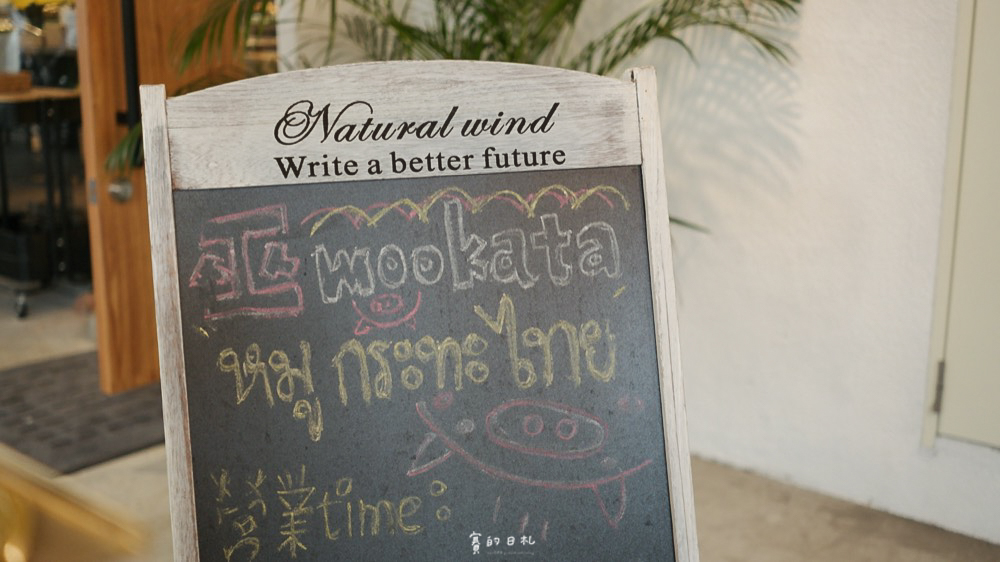 Natural wind
Write a better future
巫 wookata
หมู กระทะ ไทย
營業time:
賓的日札